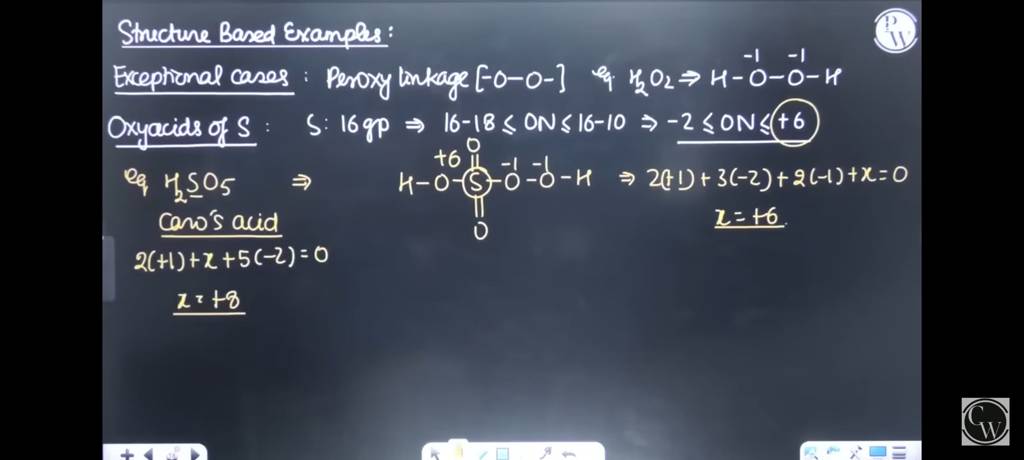 Structure Based Examples:
P
W
Exceptional cases : Peroxy linkage [-O-O-] eg H2O2 ⇒ H-O-O-H
-1 -1
Oxyacids of S : S: 16gp ⇒ 16-18 ≤ ON ≤ 16-10 ⇒ -2 ≤ ON ≤ +6
O
+6 -1 -1
eg H2SO5 ⇒ H-O-S-O-O-H ⇒ 2(+1)+3(-2)+2(-1)+x=0
O
Caro's acid
x=+6
2(+1)+x+5(-2)=0
x=+8
CW